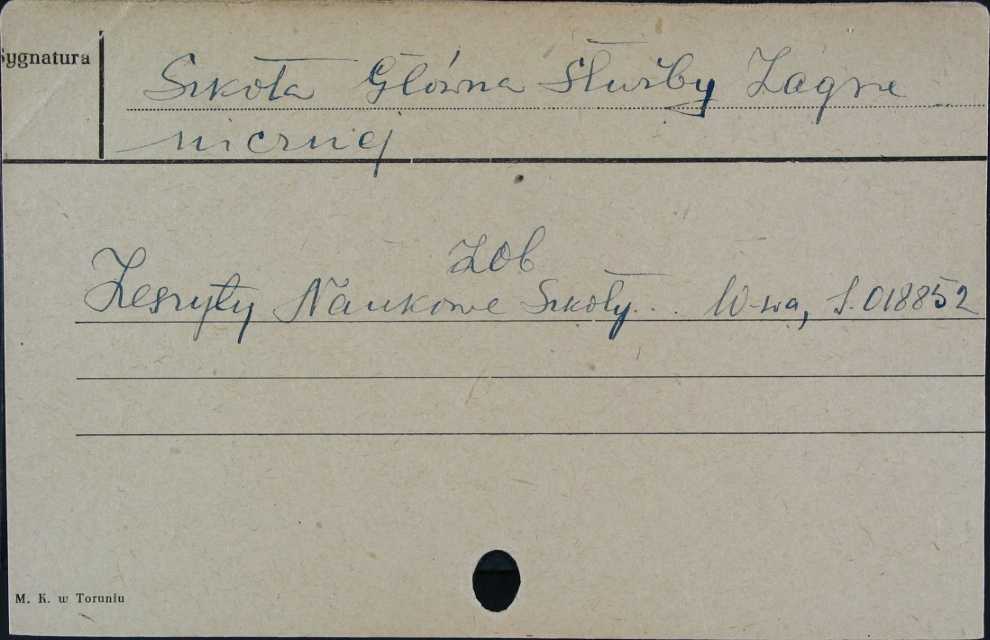 Sygnatura
Szkoła Główna Służby Zagra
nicznej
Zob
Zeszyty Naukowe Szkoły... W-wa, S.018852
M. K. w Toruniu